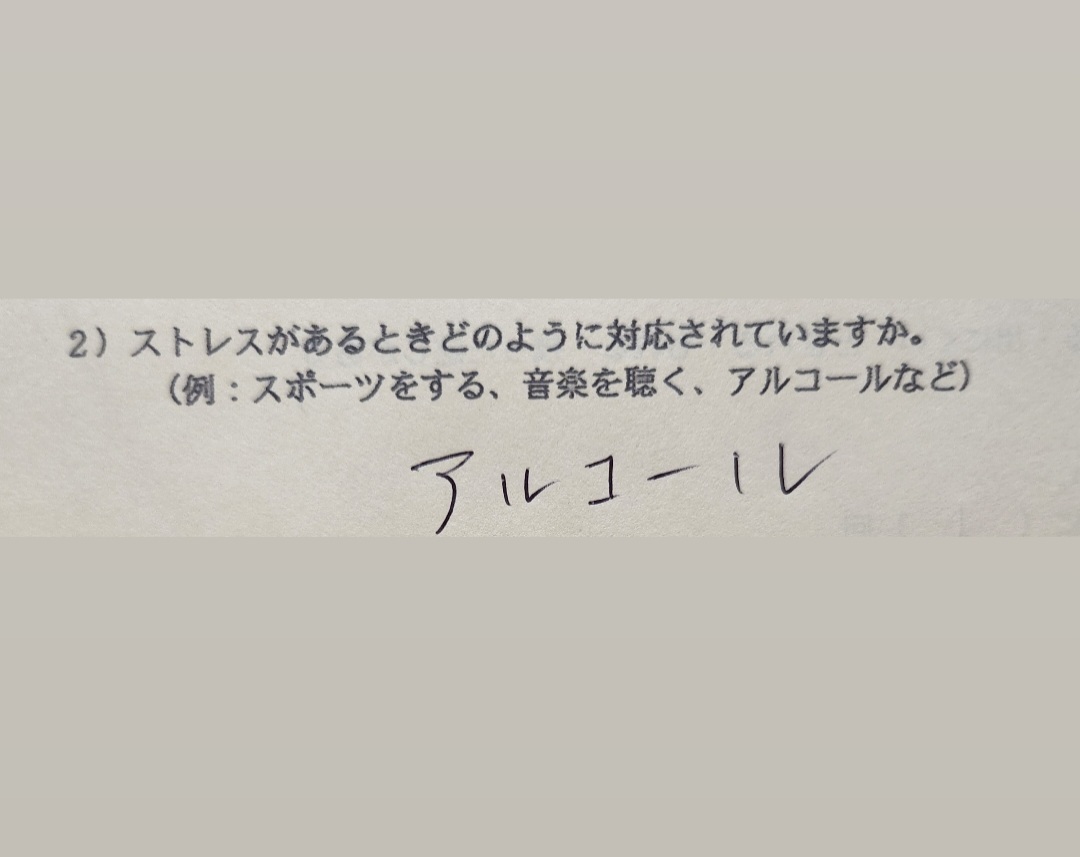 2）ストレスがあるときどのように対応されていますか。
（例：スポーツをする、音楽を聴く、アルコールなど）
アルコール